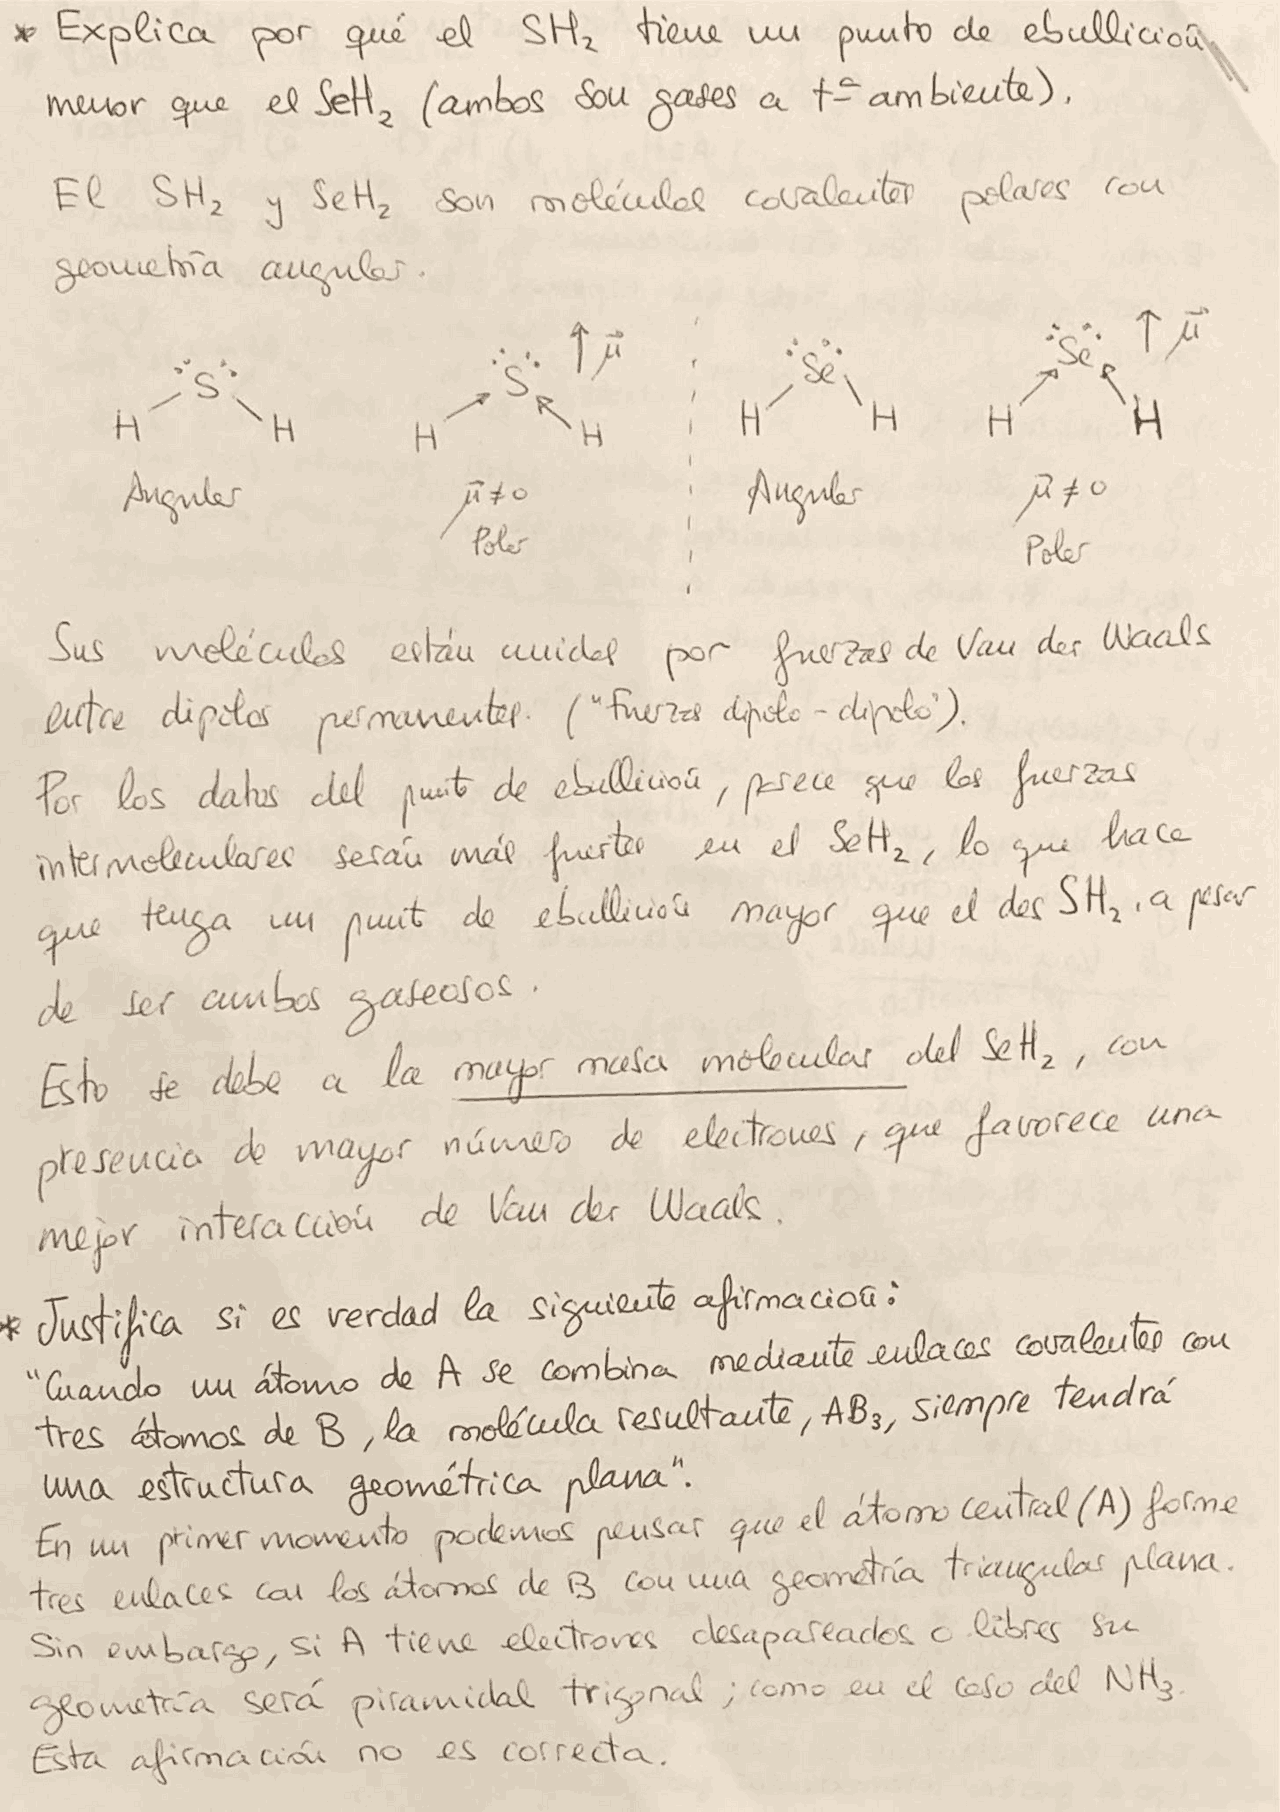 * Explica por qué el SH₂ tiene un punto de ebullición
menor que el SeH₂ (ambos son gases a tª ambiente).
El SH₂ y SeH₂ son moléculas covalentes polares con
geometría angular.
S H H S H H ↑ μ⃗ Se H H Se H H ↑ μ⃗
Angular μ⃗ ≠ 0 Angular μ⃗ ≠ 0
Polar Polar
Sus moléculas están unidas por fuerzas de Van der Waals
entre dipolos permanentes. ("Fuerzas dipolo-dipolo").
Por los datos del punto de ebullición, parece que las fuerzas
intermoleculares serán más fuertes en el SeH₂, lo que hace
que tenga un punto de ebullición mayor que el del SH₂, a pesar
de ser ambos gaseosos.
Esto se debe a la mayor masa molecular del SeH₂, con
presencia de mayor número de electrones, que favorece una
mejor interacción de Van der Waals.
* Justifica si es verdad la siguiente afirmación:
"Cuando un átomo de A se combina mediante enlaces covalentes con
tres átomos de B, la molécula resultante, AB₃, siempre tendrá
una estructura geométrica plana".
En un primer momento podemos pensar que el átomo central (A) forme
tres enlaces con los átomos de B con una geometría triangular plana.
Sin embargo, si A tiene electrones desapareados o libres su
geometría será piramidal trigonal; como en el caso del NH₃.
Esta afirmación no es correcta.